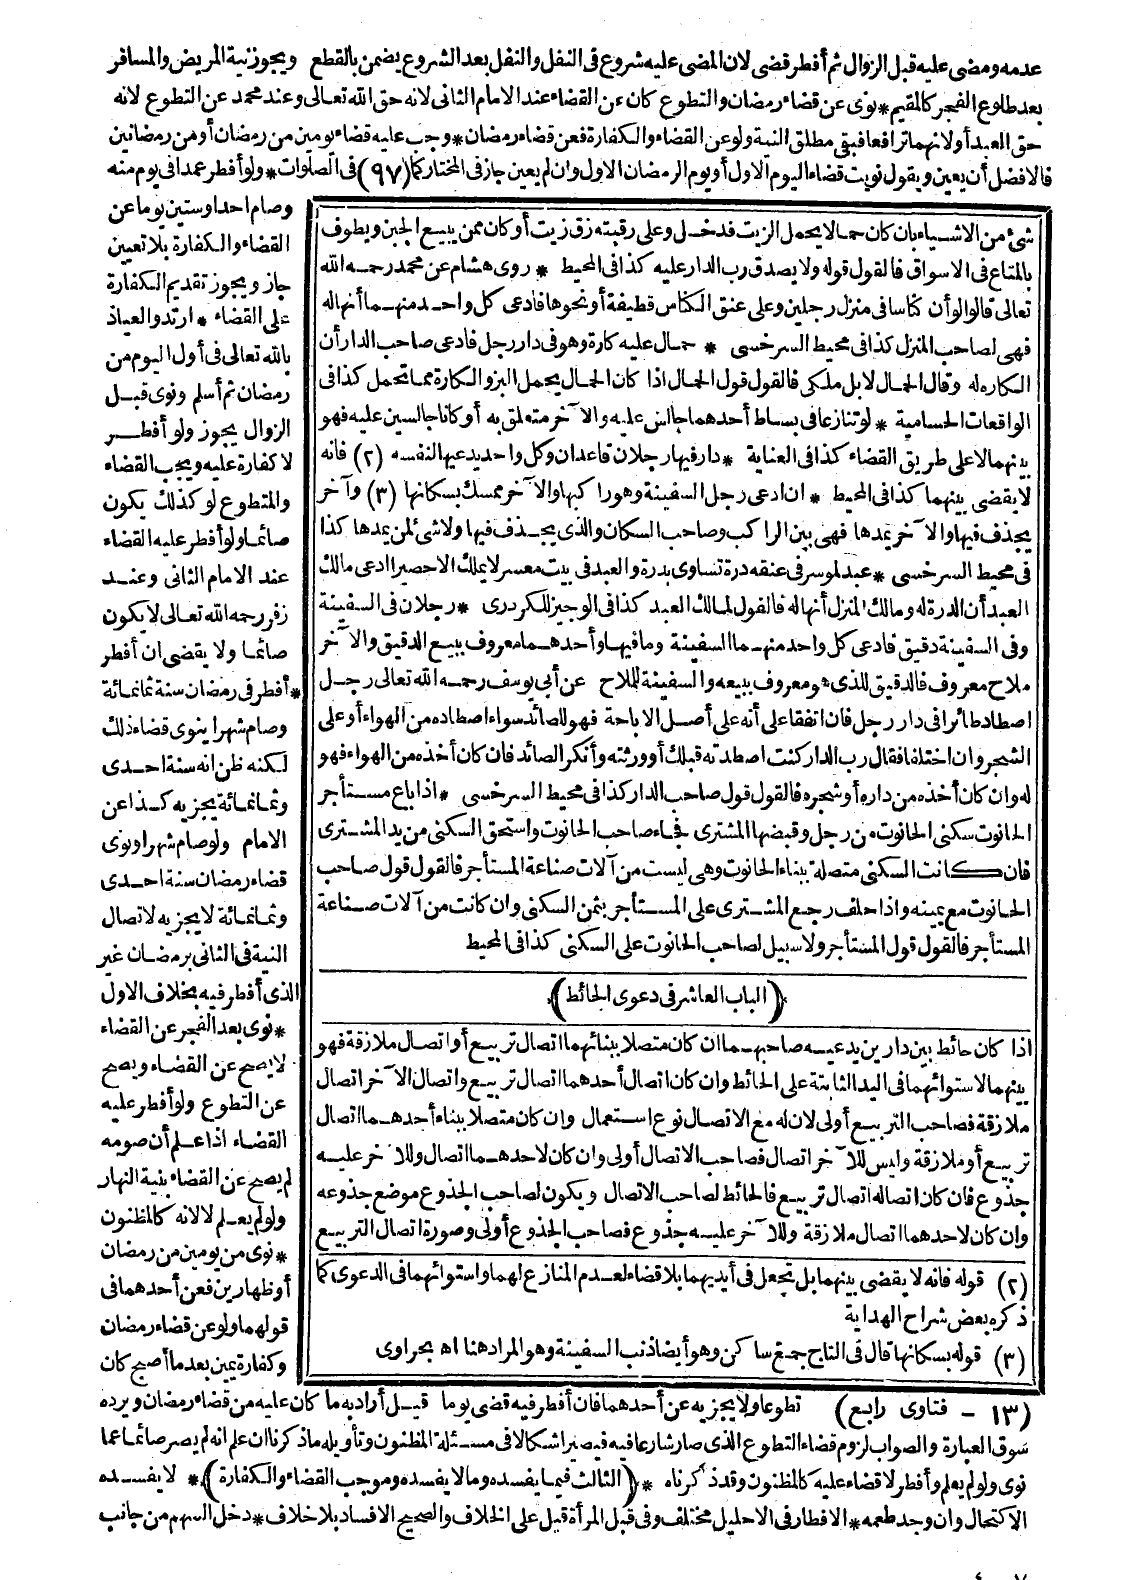 عدمه ومضى عليه قبل الزوال ثم أفطر قضى لان المضى عليه شروع فى النفل والنفل بعد الشروع يضمن بالقطع ويجوز نية المريض والمسافر
بعد طلوع الفجر كالمقيم * نوى عن قضاء رمضان والتطوع كان عن القضاء عند الامام الثانى لانه حق الله تعالى وعند محمد عن التطوع لانه
حق العبد أولانهما ترافعا فبقى مطلق النية ولو عن القضاء والكفارة فعن قضاء رمضان * وجب عليه قضاء يومين من رمضان أو من رمضانين
فالافضل أن يعين ويقول نويت قضاء اليوم الاول أو يوم الرمضان الاول وان لم يعين جاز فى المختار كما (٩٧) فى الصلوات * ولو أفطر عمدا فى يوم منه
وصام احدا وستين يوما عن
القضاء والكفارة بلا تعيين
جاز ويجوز تقديم الكفارة
على القضاء * ارتد والعياذ
بالله تعالى فى أول اليوم من
رمضان ثم أسلم ونوى قبل
الزوال يجوز ولو أفطر
لا كفارة عليه ويجب القضاء
والمتطوع لو كذلك يكون
صائما ولو أفطر عليه القضاء
عند الامام الثانى وعند
زفر رحمه الله تعالى لا يكون
صائما ولا يقضى ان أفطر
* أفطر فى رمضان سنة ثمانمائة
وصام شهرا ينوى قضاء ذلك
لكنه ظن انه سنة احدى
وثمانمائة يجزيه كذا عن
الامام ولو صام شهرا ونوى
قضاء رمضان سنة احدى
وثمانمائة لا يجزيه لاتصال
النية فى الثانى برمضان غير
الذى أفطر فيه بخلاف الاول
* نوى بعد الفجر عن القضاء
لا يصح عن القضاء ويصح
عن التطوع ولو أفطر عليه
القضاء اذا علم أن صومه
لم يصح عن القضاء بنية النهار
ولو لم يعلم لا لانه كالمظنون
* نوى من يومين من رمضان
أو ظهارين فعن أحدهما فى
قولهما ولو عن قضاء رمضان
وكفارة يمين بعد ما أصبح كان
شئ من الاشياء بان كان حمالا يحمل الزيت فدخل وعلى رقبته زق زيت أو كان ممن يبيع الجبن ويطوف
بالمتاع فى الاسواق فالقول قوله ولا يصدق رب الدار عليه كذا فى المحيط * روى هشام عن محمد رحمه الله
تعالى قالوا لو أن كناسا فى منزل رجلين وعلى عنق الكناس قطيفة أو نحوها فادعى كل واحد منهما أنها له
فهى لصاحب المنزل كذا فى محيط السرخسى * حمال عليه كارة وهو فى دار رجل فادعى صاحب الدار أن
الكاره له وقال الحمال لا بل ملكى فالقول قول الحمال اذا كان الحمال يحمل البز والكارة مما تحمل كذا فى
الواقعات الحسامية * لو تنازعا فى بساط أحدهما جالس عليه والآخر متعلق به أو كانا جالسين عليه فهو
بينهما لا على طريق القضاء كذا فى العناية * دار فيها رجلان قاعدان وكل واحد يدعيها لنفسه (٢) فانه
لا يقضى بينهما كذا فى المحيط * ان ادعى رجل السفينة وهو راكبها والآخر ممسك بسكانها (٣) وآخر
يجذف فيها والآخر يمدها فهى بين الراكب وصاحب السكان والذى يجذف فيها ولا شئ لمن يمدها كذا
فى محيط السرخسى * عبد لموسر فى عنقه درة تساوى بدرة والعبد فى بيت معسر لا يملك الا حصيرا ادعى مالك
العبد أن الدرة له ومالك المنزل أنها له فالقول لمالك العبد كذا فى الوجيز للكردرى * رجلان فى السفينة
وفى السفينة دقيق فادعى كل واحد منهما السفينة وما فيها وأحدهما معروف ببيع الدقيق والآخر
ملاح معروف فالدقيق للذى هو معروف ببيعه والسفينة للملاح عن أبى يوسف رحمه الله تعالى رجل
اصطاد طائرا فى دار رجل فان اتفقا على أنه على أصل الاباحة فهو للصائد سواء اصطاده من الهواء أو على
الشجر وان اختلفا فقال رب الدار كنت اصطدته قبلك أو ورثته وأنكر الصائد فان كان أخذه من الهواء فهو
له وان كان أخذه من داره أو شجره فالقول قول صاحب الدار كذا فى محيط السرخسى * اذا باع مستأجر
الحانوت سكنى الحانوت من رجل وقبضها المشترى فجاء صاحب الحانوت واستحق السكنى من يد المشترى
فان كانت السكنى متصلة ببناء الحانوت وهى ليست من آلات صناعة المستأجر فالقول قول صاحب
الحانوت مع يمينه واذا حلف رجع المشترى على المستأجر بثمن السكنى وان كانت من آلات صناعة
المستأجر فالقول قول المستأجر ولا سبيل لصاحب الحانوت على السكنى كذا فى المحيط
﴿الباب العاشر فى دعوى الحائط﴾
اذا كان حائط بين دارين يدعيه صاحبهما ان كان متصلا ببنائهما اتصال تربيع أو اتصال ملازقة فهو
بينهما لاستوائهما فى اليد الثابتة على الحائط وان كان اتصال أحدهما اتصال تربيع واتصال الآخر اتصال
ملازقة فصاحب التربيع أولى لان له مع الاتصال نوع استعمال وان كان متصلا ببناء أحدهما اتصال
تربيع أو ملازقة وليس للآخر اتصال فصاحب الاتصال أولى وان كان لاحدهما اتصال وللآخر عليه
جذوع فان كان اتصاله اتصال تربيع فالحائط لصاحب الاتصال ويكون لصاحب الجذوع موضع جذوعه
وان كان لاحدهما اتصال ملازقة وللآخر عليه جذوع فصاحب الجذوع أولى وصورة اتصال التربيع
(٢) قوله فانه لا يقضى بينهما بل تجعل فى أيديهما بلا قضاء لعدم المنازع لهما واستوائهما فى الدعوى كما
ذكره بعض شراح الهداية
(٣) قوله بسكانها قال فى التاج جمع ساكن وهو أيضا ذنب السفينة وهو المراد هنا اه بحراوى
(١٣ - فتاوى رابع) تطوعا ولا يجزيه عن أحدهما فان أفطر فيه قضى يوما قيل أراد به ما كان عليه من قضاء رمضان ويرده
سوق العبارة والصواب لزوم قضاء التطوع الذى صار شارعا فيه فيصير اشكالا فى مسئلة المظنون وتأويله ما ذكرنا ان علم انه لم يصر صائما عما
نوى ولو لم يعلم وأفطر لا قضاء عليه كالمظنون وقد ذكرناه * ﴿الثالث فيما يفسده وما لا يفسده وموجب القضاء والكفارة﴾ * لا يفسده
الاكتحال وان وجد طعمه * الاقطار فى الاحليل مختلف وفى قبل المرأة قيل على الخلاف والصحيح الافساد بلا خلاف * دخل السهم من جانب